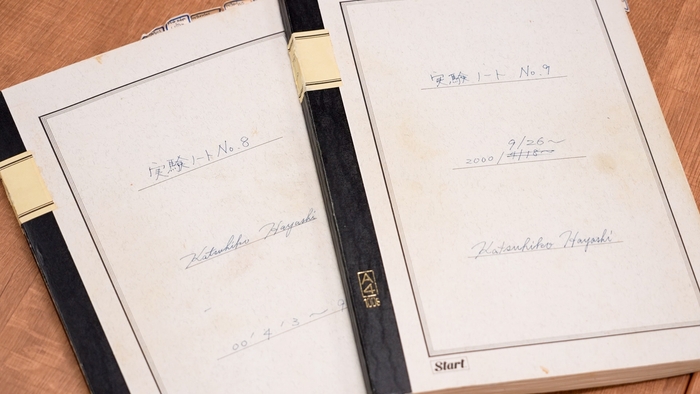 実験ノート No.8
Katsuhiko Hayashi
00' 4' 3 ~
実験ノート No.9
9/26~
2000/
Katsuhiko Hayashi
A4
100s
Start